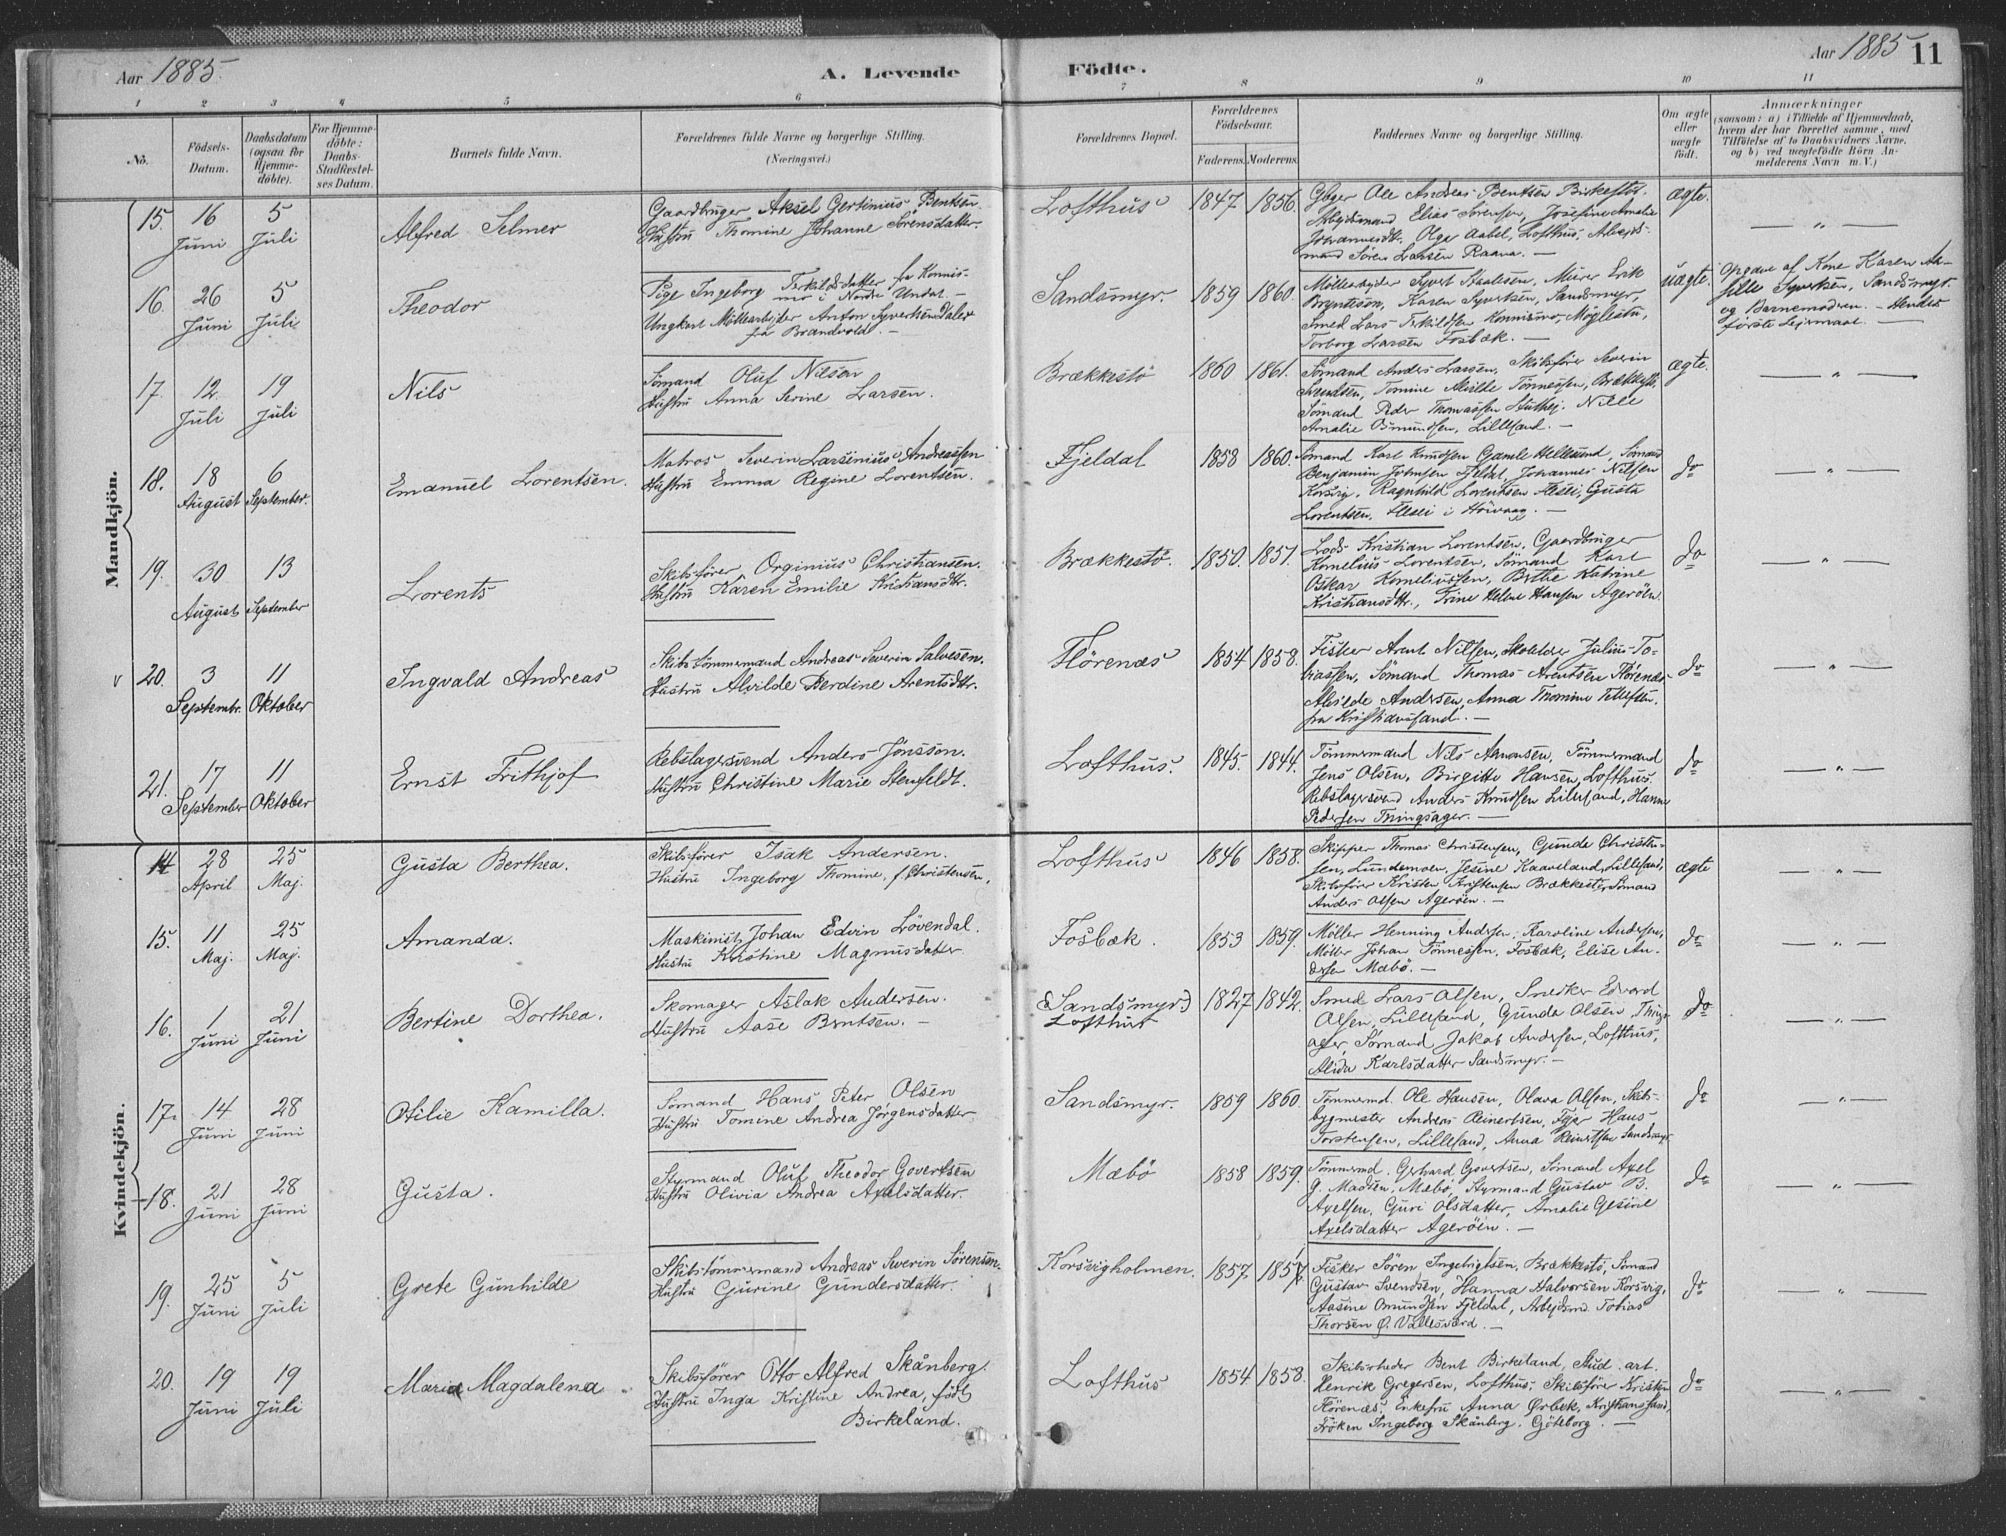 Aar 1885.
A. Levende
Födte.
Aar 1885
11
1 2 3 4 5 6 7 8 9 10 11
No.
Födsels-Datum.
Daabsdatum (ogsaa for Hjemme-döbte).
For Hjemme-döbte: Daabs-Stadfæstel-ses Datum.
Barnets fulde Navn.
Forældrenes fulde Navne og borgerlige Stilling. (Næringsvei.)
Forældrenes Bopæl.
Forældrenes Födselsaar.
Faderens. Moderens.
Faddernes Navne og borgerlige Stilling.
Om ægte eller uægte födt.
Anmærkninger
(saasom: a) i Tilfælde af Hjemmedaab, hvem der har forrettet samme, med Tilföielse af to Daabsvidners Navne, og b) ved uægtefödte Börn An-melderens Navn m. V.)
Mandkjön.
15. 16 Juni 5 Juli Alfred Selmer
Gaardbruger Aksel Gertinius Bentsen.
Hustru Thomine Johanne Sörensdatter.
Lofthus 1847 1856.
Gbger Ole Andreas Bentsen Birkestöl.
Arbejdsmand Elias Sörensen, Josefine Amalie
Johannesdtr. Olga Aabel, Lofthus, Arbejds-
mand Sören Larsen Raana. —
ægte. — „ —
16. 26 Juni 5 Juli Theodor
Pige Ingeborg Terkildsdatter fra Konnis-
mo i Nordre Undal. —
Ungkarl Möllearbejder Anton Syvertsen Dalen
fra Brandvold. —
Sandsmyr. 1859 1860.
Möllearbejder Syvert Staalesen, Murer Erik
Bryntesön, Karen Syvertsen, Sandsmyr,
Smed Lars Terkildsen Konnismo, Möglestu,
Torborg Larsen Fosbæk. —
uægte.
Opgave af Kone Karen
Syvertsen, Sandsmyr.
og Barnemoderen. — Hendes
förste Lejermaal. —
17. 12 Juli 19 Juli Nils
Sömand Oluf Nilsen
Hustru Anna Serine Larsen.
Brækkestö 1860 1861.
Sömand Anders Larsen, Skibsförer Severin
Svendsen, Tomine Alvilde Tönnessen, Brækkestö,
Sömand Peder Thomassen Nille
Amalie Osmundsen, Lillesand. —
ægte. — „ —
18. 18 August 6 September. Emanuel Lorentsen.
Matros Severin Larsinius Andreassen
Hustru Emma Regine Lorentsen.
Fjeldal 1858 1860.
Sömand Karl Knudsen Gamle Hellesund, Sömand
Benjamin Johnsen Fjeldal, Johannes Nilsen
Korsvig, Ragnhild Lorentsen Flesei, Gusta
Lorentsen, Flesei i Höivaag. —
do — „ —
19. 30 August 13 September Lorents
Skibsförer Orginius Christiansen.
Hustru Karen Emilie Kristiansdtr.
Brækkestö. 1850. 1851.
Lods Kristian Lorentsen, Gaardbruger
Kornelius Lorentsen, Sömand Karl
Oskar Korneliussen, Birthe Katrine
Kristiansdtr., Trine Helene Hansen Ageröen.
do — „ —
v 20. 3 Septembr. 11 Oktober Ingvald Andreas
Skibstömmermand Andreas Severin Salvesen.
Hustru Alvilde Berdine Arentsdtr.
Flörenæs 1854 1858.
Fisker Arent Nilsen, Skoleldr Julius To-
biassen, Sömand Thomas Arentsen Flörenæs
Alvilde Andersen, Anna Thomine Tellefsen.
fra Kristianssand. —
do — „ —
21. 17 September 11 Oktober Ernst Frithjof
Rebslagersvend Anders Jönsson.
Hustru Christine Marie Stenfeldt.
Lofthus. 1845. 1844.
Tömmermand Nils Amonsen, Tömmermand
Jens Olsen, Birgitte Hansen, Lofthus.
Rebslagersvend Anders Knudsen Lillesand, Hanne
Pedersen Tingsager. —
do — „ —
Kvindekjön.
14 28 April 25 Maj. Gusta Berthea.
Skibsförer Isak Andersen.
Hustru Ingeborg Thomine, f. Christensen,
Lofthus 1846 1858.
Skipper Thomas Christensen, Gunde Christen-
sen, Lundemoen, Jesine Kaaveland, Lillesand,
Skibsförer Kristen Kristensen Brækkestö, Sömand
Anders Olsen Ageröen. —
ægte — „ —
15. 11 Maj. 25 Maj. Amanda.
Maskinist Johan Edvin Lövendal.
Hustru Kristine Magnusdatter
Fosbæk. 1853 1859.
Möller Henning Andersen, Karoline Andersen,
Möller Johan Tönnessen, Fosbæk, Elise An-
dersen Mæbö. —
do — „ —
16. 1 Juni 21 Juni Bertine Dorthea.
Skomager Aslak Andersen.
Hustru Aase Berntsen. —
(Sandsmyr)
Lofthus
1827 1842.
Smed Lars Olsen, Snedker Edvard
Olsen, Lillesand, Gunda Olsen Tings-
ager, Sömand Jakob Andersen, Lofthus,
Alida Karlsdatter Sandsmyr. —
do — „ —
17. 14 Juni 28 Juni Otilie Kamilla.
Sömand Hans Peter Olsen
Hustru Tomine Andrea Jörgensdatter
Sandsmyr. 1859 1860.
Tömmermd. Ole Hansen, Olava Olsen, Skibs-
bygmester Andreas Reinertsen, Hans
Torstensen, Lillesand, Anna Reinertsen Sandsmyr
do — „ —
18. 21 Juni 28 Juni Gusta.
Styrmand Oluf Theodor Govertsen
Hustru Olivia Andrea Axelsdatter.
Mæbö 1858 1859.
Tömmermd. Gerhard Govertsen, Sömand Axel
G. Madsen, Mæbö, Styrmand Gustav B.
Axelsen, Guri Olsdatter, Amalie Gesine
Axelsdatter Ageröen. —
do — „ —
19. 25 Juni 5 Juli Grete Gunhilde
Skibstömmermand Andreas Severin Sörensen.
Hustru Gjurine Gundersdatter.
Korsvigholmen. 1857 1857.
Fisker Sören Ingebrigtsen, Brækkestö, Sömand
Gustav Svendsen, Hanna Halvorsen Korsvig,
Aasine Omundsen Fjeldal, Arbejdsmd. Tobias
Thorsen Ö. Vallesværd. —
do — „ —
20. 19 Juni 19 Juli Maria Magdalena
Skibsförer Otto Alfred Skånberg.
Hustru Inga Kristine Andrea, født
Birkeland.
Lofthus 1854 1858.
Skibsrheder Bent Birkeland, Stud. art.
Henrik Gregersen, Lofthus, Skibsförer Kristen
Flörenæs, Enkefru Anna Ørbek, Kristianssand,
Fröken Ingeborg Skånberg. Göteborg. —
do — „ —